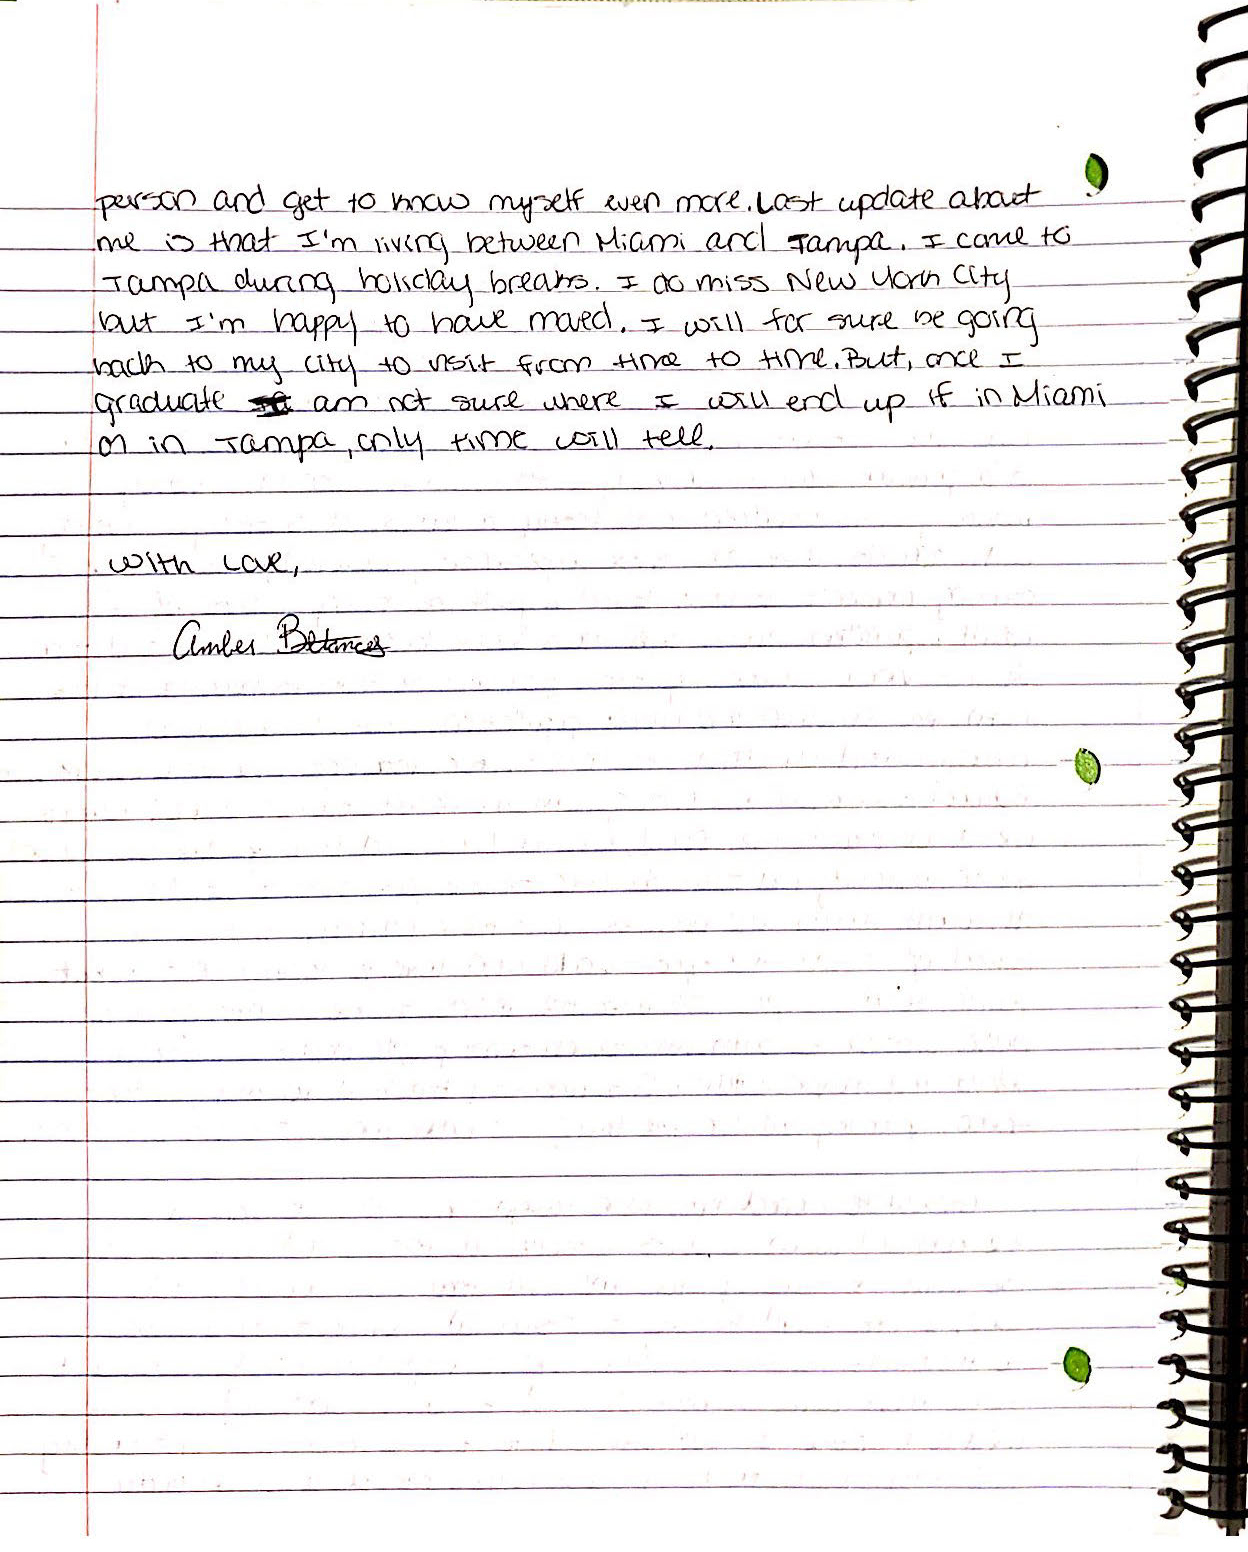 person and get to know myself even more. Last update about
me is that I'm living between Miami and Tampa. I come to
Tampa during holiday breaks. I do miss New York City
but I'm happy to have moved. I will for sure be going
back to my city to visit from time to time. But, once I
graduate am not sure where I will end up if in Miami
or in Tampa, only time will tell.
With Love,
Amber Betances